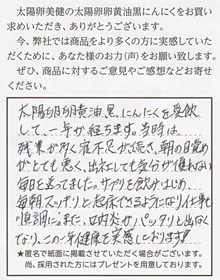 太陽卵美健の太陽卵卵黄油黒にんにくをお買
い求めいただき、ありがとうございます。
今、弊社では商品をより多くの方に実感していた
だくために、あなた様のお力(声)をお願い致します。
ぜひ、商品に対するご意見やご感想などお寄せ
ください。
太陽卵卵黄油黒にんにくを愛飲
して、一年が経ちます。当時は、
残業が多く寝不足が続き、朝の目覚め
がとても悪く、出社しても気分が優れない
毎日を送ってました。サプリを飲みはじめ、
毎朝スッキリと起床できるようになり仕事も
順調に。また、口内炎がパッタリと出なく
なり、この一年健康を実感しております!
★匿名で紙面に掲載させていただく場合がございます。
尚、採用された方にはプレゼントを用意しております。